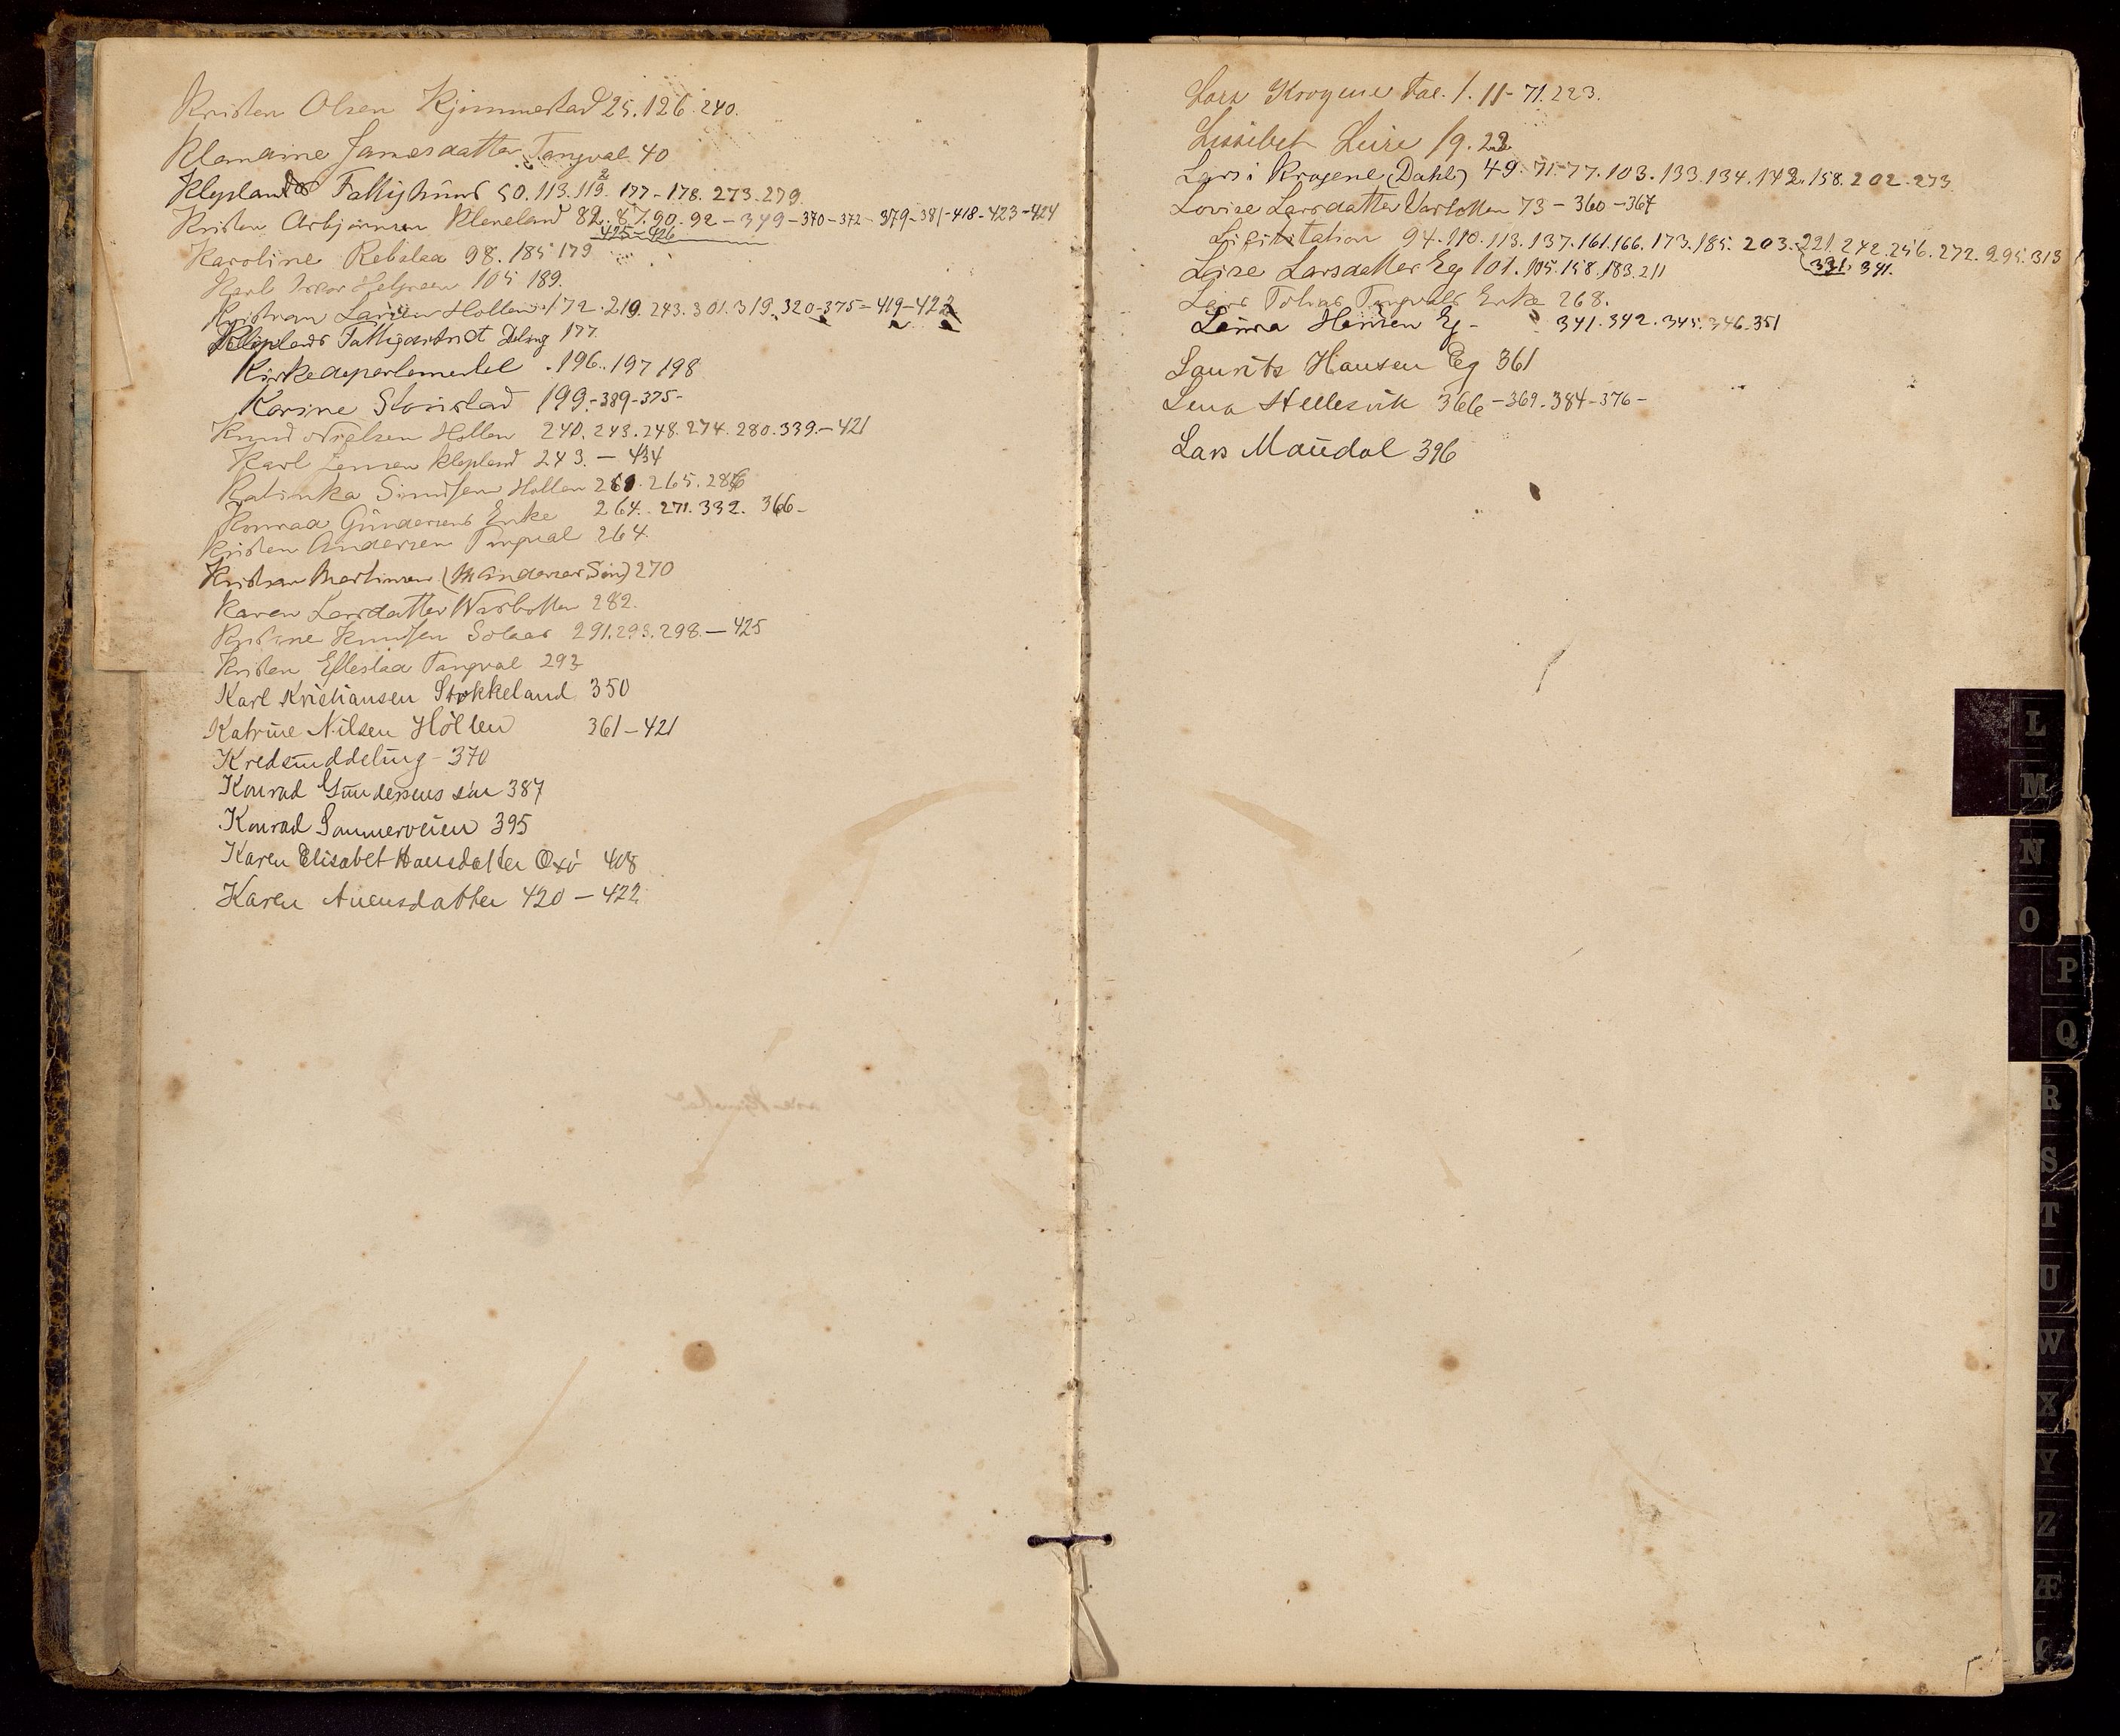 Kristen Olsen Kjimmestad 25.126.240.
Klemdine Jamesdatter Tangval 40
Kleplands Fattighuus 50.113.119. 177-178. 273.279.
Kristen Asbjörnsen Kleveland 82.87.90.92-349-370-372-379-381-418-423-424
425-426
Karoline Rebslaa 98.185 179
Karl 105 189.
Kristian Larsen Hollen 172.219.243.301.319.320-375-419-422
Kleplands Fattigdistrict Deling 177.
Kirkedepartementet .196.197 198
Karine Stoustad 199-389-375-
Knud Nielsen Hollen 240.243.248.274.280.339.-421
Karl Jensen Klepland 243. - 434
Katinka Simonsen Hollen 261.265.286
Konrad Gundersens Enke 264. 271.332. 366-
Kristen Andersen Tangval 264.
Kristian Martinsen (M Anderser Søn) 270
Karen Larsdatter Warbotten 282.
Kristine Knudsen Solaas 291.293.298.-425
Kristen Eftestad Tangval 293
Karl Kristiansen Stokkeland 350
Katrine Nilsen Höllen 361-421
Kredsinddeling - 370
Konrad Gundersens søn 387
Konrad Sommerveien 395
Karen Elisabet Hansdatter Oxö 408
Karen Avensdatter 420 - 422
Lars Krogene Fol. 1. 11-71.223.
Lissibet Leire 19. 23
Lars i Krogene (Dahl) 49.71-77.103.133.134.142.158.202.273
Lovise Larsdatter Varbotten 73-360-367
Licitation 94.110.113.137.161.166.173.185.203.221.242.256.272.295.313
331. 341.
Lovise Larsdatter Eg 101.105.158.183.211
Lars Tobias Tangvals Enke 268.
Laura Hansen Eg - 341.342.345.346.351
Laurits Hansen Eg 361
Lena Hellesvik 366-369.384-376-
Lars Maudal 396
L
M
N
O
P
Q
R
S
T
U
W
X
Y
Z
Æ